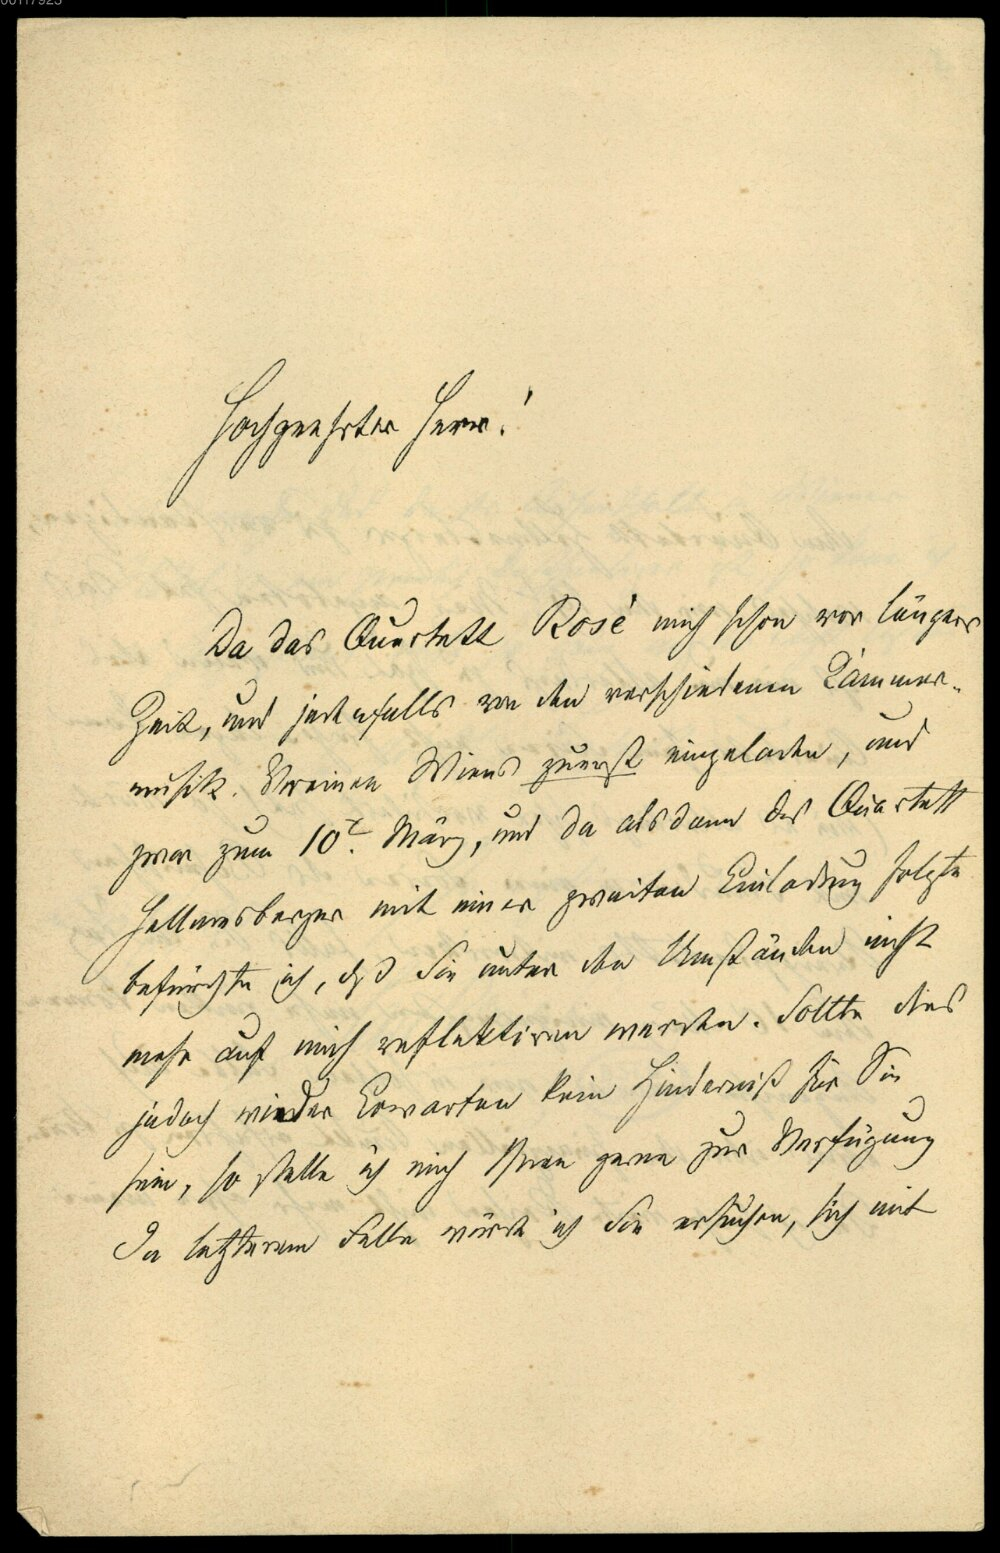 00117925
Hochgeehrter Herr!
Da das Quartett Rosé mich schon vor längerer
Zeit, und jedenfalls von den verschiedenen Kammer-
musik. Vereinen Wiens zuerst eingeladen, und
zwar zum 10t. März, und da alsdann das Quartett
Hellmesberger mit einer zweiten Einladung folgte
befürchte ich, daß Sie unter den Umständen nicht
mehr auf mich reflektiren werden. Sollte dies
jedoch wieder Erwarten kein Hinderniß für Sie
sein, so stelle ich mich Ihnen gerne zur Verfügung
In letzterem Falle würde ich Sie ersuchen, sich mit